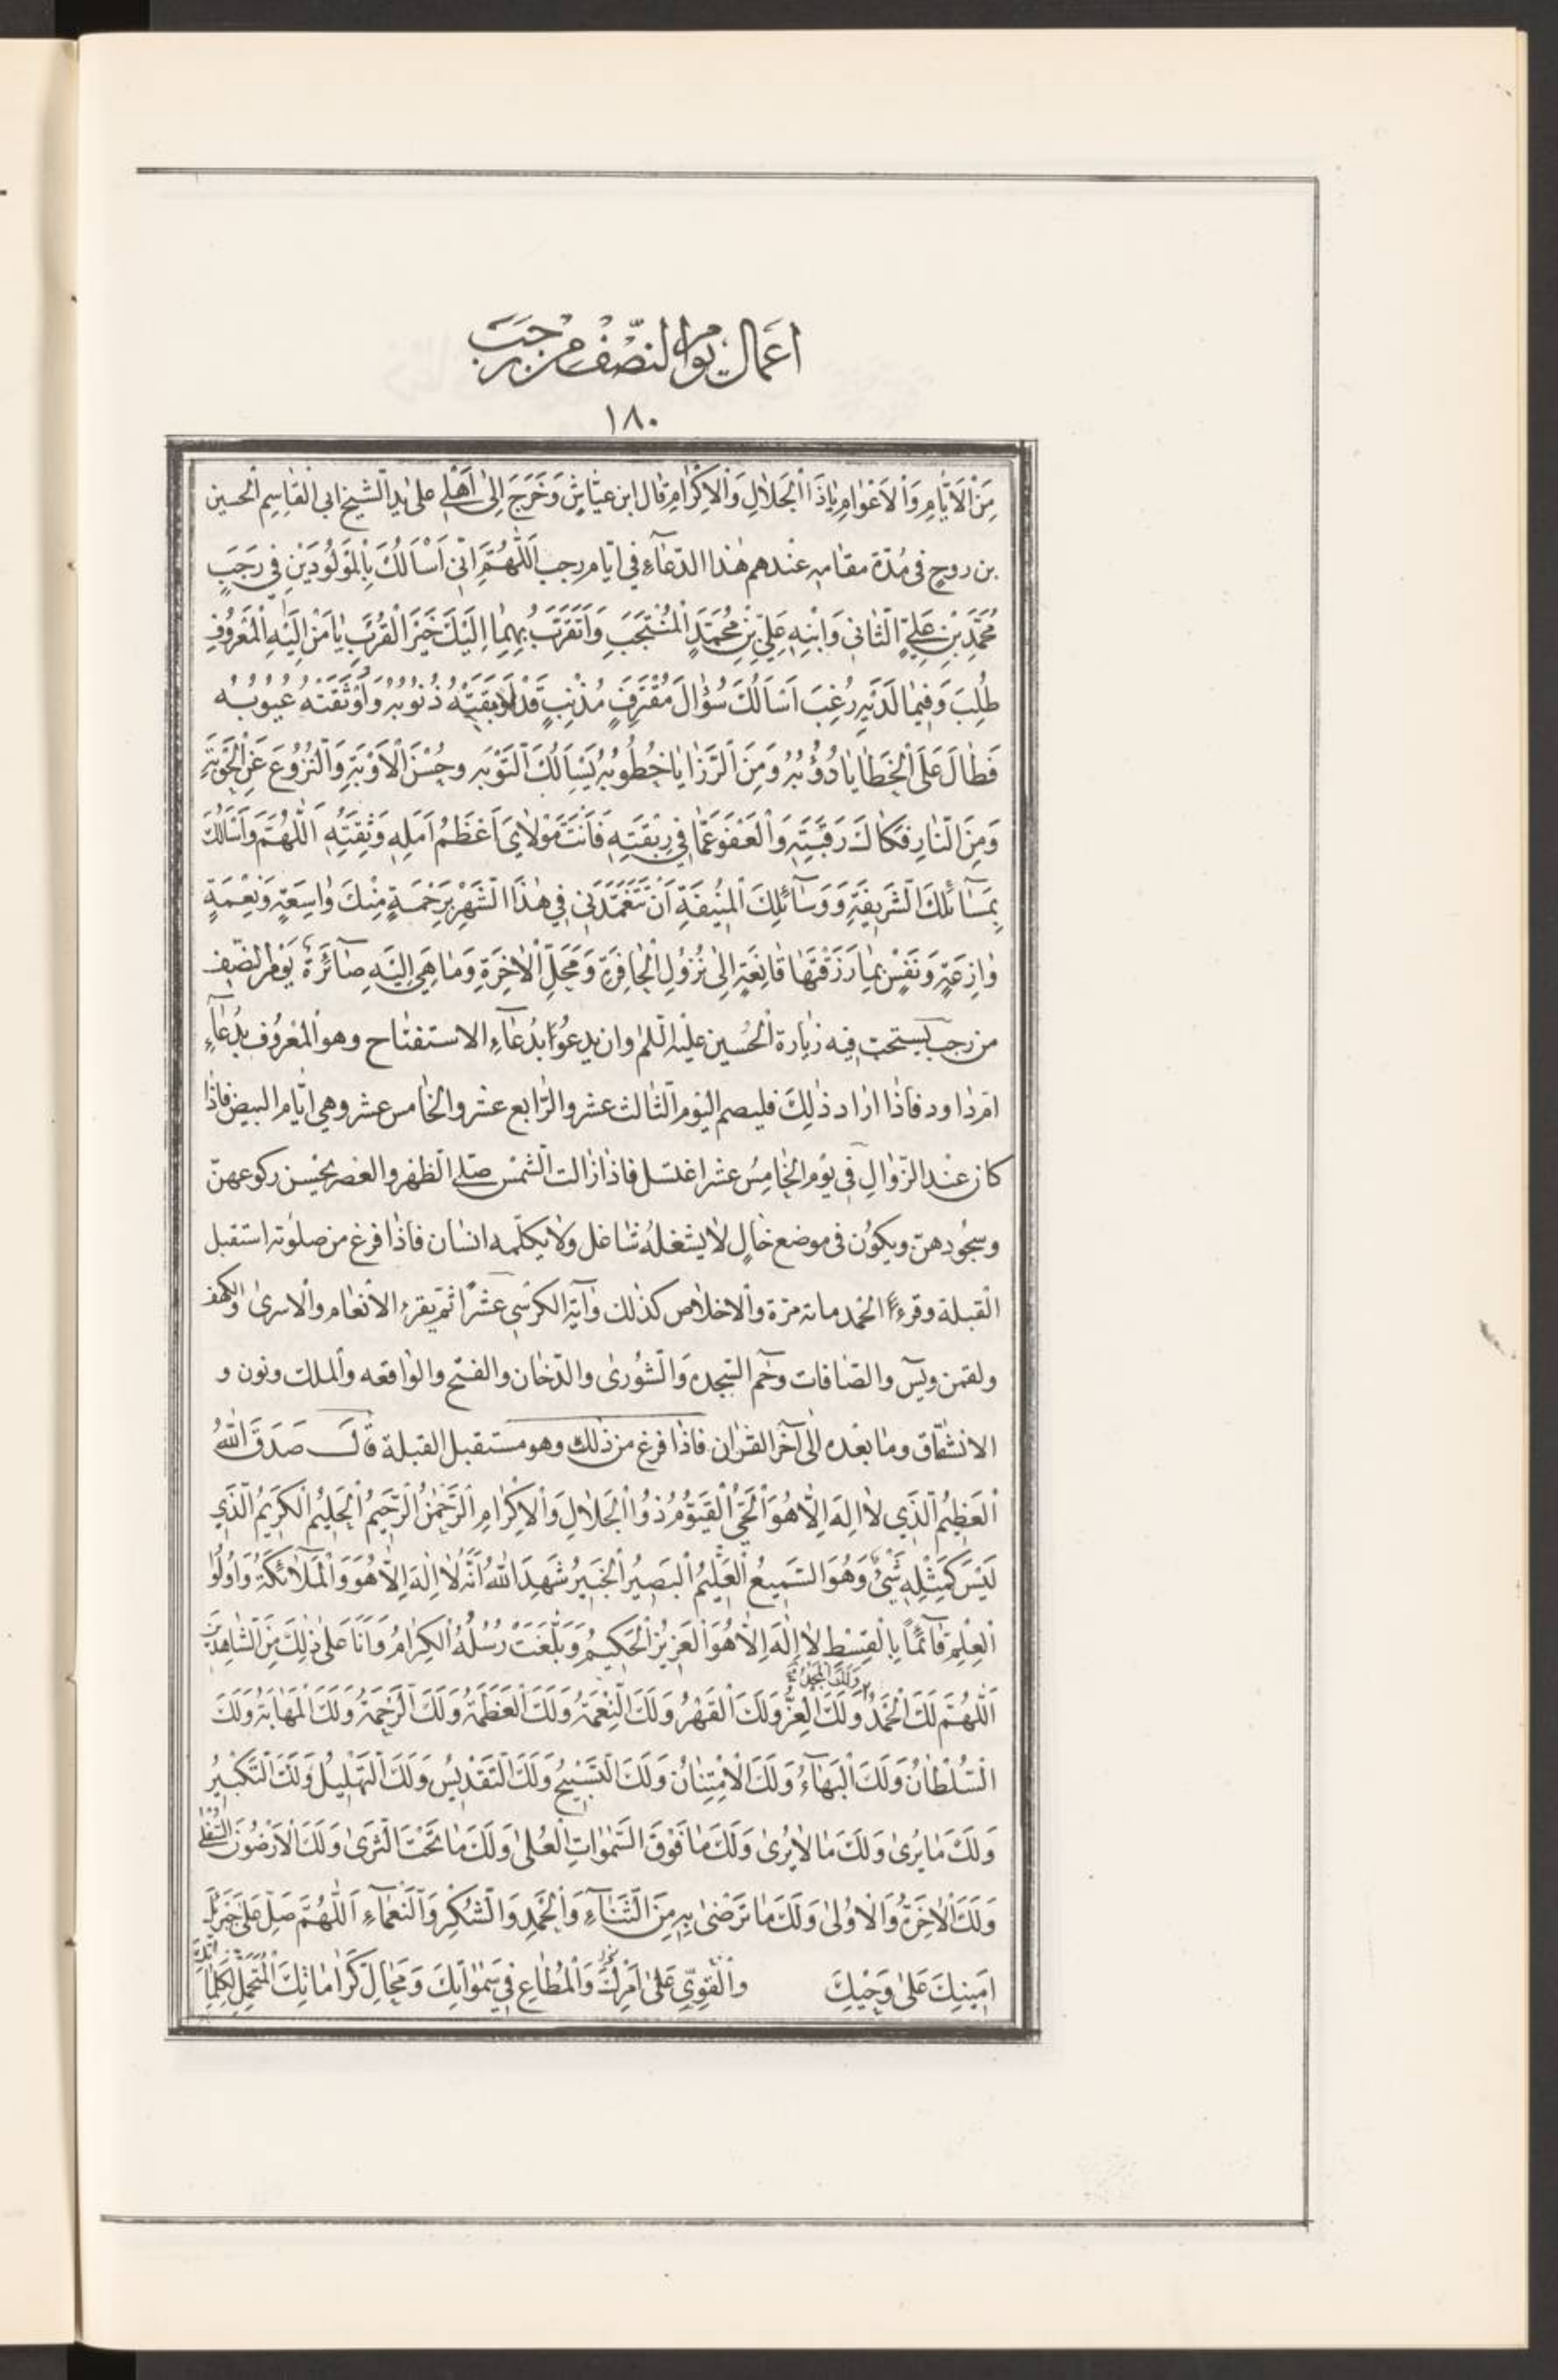 اَعمال يوم النّصف من رجب
١٨٠
مِنَ الْاَيّٰامِ وَالْاَعْوٰامِ يٰاذَا الْجَلٰالِ وَالْاِكْرٰامِ قال ابن عيّاش وَخَرَجَ اِلىٰ اَهْلي على يد الشيخ ابي القاسم الحسين
بن روح في مُدّة مقامه عندهم هٰذا الدّعآءِ في ايّام رجب اَللّٰهُمَّ اِنّي اَسْأَلُكَ بِالْمَوْلُودَيْنِ في رَجَبٍ
مُحَمَّدِ بْنِ عَلِيٍّ الثّٰاني وَابْنِهِ عَلِيِّ بْنِ مُحَمَّدٍ الْمُنْتَجَبِ وَاَتَقَرَّبُ بِهِمٰا اِلَيْكَ خَيْرَ الْقُرَبِ يٰامَنْ اِلَيْهِ الْمَعْرُوفُ
طُلِبَ وَفيمٰا لَدَيْهِ رُغِبَ اَسْاَلُكَ سُؤٰالَ مُقْتَرِفٍ مُذْنِبٍ قَدْ اَوْبَقَتْهُ ذُنُوبُهُ وَاَوْثَقَتْهُ عُيُوبُهُ
فَطٰالَ عَلَى الْخَطٰايٰا دُؤُبُهُ وَمِنَ الرَّزٰايٰا خُطُوبُهُ يَسْأَلُكَ التَّوْبَه وحُسْنَ الْاَوْبَةِ وَالنُّزُوعَ عَنِ الْحَوْبَةِ
وَمِنَ النّٰارِ فَكٰاكَ رَقَبَتِهِ وَالْعَفْوَ عَمّٰا في رِبْقَتِهِ فَاَنْتَ مَوْلٰايَ اَعْظَمُ اَمَلِهِ وَثِقَتِهِ اَللّٰهُمَّ وَاَسْأَلُكَ
بِمَسٰآئِلِكَ الشَّريفَةِ وَوَسٰآئِلِكَ الْمُنيفَةِ اَنْ تَتَغَمَّدَني في هٰذَا الشَّهْرِ بِرَحْمَةٍ مِنْكَ وٰاسِعَةٍ وَنِعْمَةٍ
وٰازِعَةٍ وَنَفْسٍ بِمٰا رَزَقْتَهٰا قٰانِعَةٍ اِلىٰ نُزُولِ الْحٰافِرَةِ وَمَحَلِّ الْاٰخِرَةِ وَمٰا هِيَ اِلَيْهِ صٰآئِرَةٌ يَوْم النّصف
من رجب يستحبّ فيه زيٰارة الحُسين عليه السّلم وان يدعُوا بدُعٰآءِ الاستفتٰاح وهو المعرُوف بدُعٰآءِ
امّ داود فاذٰا ارٰاد ذٰلِكَ فليصم اليوم الثّالث عشر والرّٰابع عشر والخٰامس عشر وهي ايّٰام البيض فاذٰا
كان عند الزّوٰالِ في يوم الخٰامِسُ عشر اغتسل فاذٰا زٰالت الشّمسْ صلّى الظّهر والعصر يحْسن ركوعهنّ
وسجُودهنّ ويكوُن في موضع خٰالٍ لٰا يشغلهُ شٰاغل ولٰا يكلّمه انسٰان فاذٰا فرغ من صلوٰته استقبل
القبلة وقرءَ الحمد مائة مرّة والاخلٰاص كذٰلك وٰاية الكرسيّ عشرًا ثمّ يقرء الانعٰام والاسرىٰ والكهف
ولقمن ويٓس والصّٰافات وحٰٓم السّجده والشّورىٰ والدّخٰان والفتْح والوٰاقعه والملك ونون و
الانشقٰاق ومٰا بعْده الىٰ آخر القرٰان فاذٰا فرغ من ذٰلك وهو مستقبل القبلة قٰالَ صَدَقَ اللّٰهُ
الْعَظيمُ الَّذي لٰا اِلٰهَ اِلّٰا هُوَ الْحَيُّ الْقَيُّومُ ذُو الْجَلٰالِ وَالْاِكْرٰامِ الرَّحْمٰنُ الرَّحيمُ الْحَليمُ الْكَريمُ الَّذي
لَيْسَ كَمِثْلِهِ شَيْءٌ وَهُوَ السَّميعُ الْعَليمُ الْبَصيرُ الْخَبيرُ شَهِدَ اللّٰهُ اَنَّهُ لٰا اِلٰهَ اِلّٰا هُوَ وَالْمَلٰآئِكَةُ وَاُولُوا
الْعِلْمِ قٰآئِمًا بِالْقِسْطِ لٰا اِلٰهَ اِلّٰا هُوَ الْعَزيزُ الْحَكيمُ وَبَلَّغَتْ رُسُلُهُ الْكِرٰامُ وَاَنَا عَلىٰ ذٰلِكَ مِنَ الشّٰاهِدينَ
وَلَكَ الْمَجْدُ
اَللّٰهُمَّ لَكَ الْحَمْدُ وَلَكَ الْعِزُّ وَلَكَ الْقَهْرُ وَلَكَ النِّعْمَةُ وَلَكَ الْعَظَمَةُ وَلَكَ الرَّحْمَةُ وَلَكَ الْمَهٰابَةُ وَلَكَ
السُّلْطٰانُ وَلَكَ الْبَهٰآءُ وَلَكَ الْاِمْتِنٰانُ وَلَكَ التَّسْبيحُ وَلَكَ التَّقْديسُ وَلَكَ التَّهْليلُ وَلَكَ التَّكْبيرُ
وَلَكَ مٰا يُرىٰ وَلَكَ مٰا لٰا يُرىٰ وَلَكَ مٰا فَوْقَ السَّمٰوٰاتِ الْعُلىٰ وَلَكَ مٰا تَحْتَ الثَّرىٰ وَلَكَ الْاَرَضُونَ السُّفْلىٰ
وَلَكَ الْاٰخِرَةُ وَالْاُولىٰ وَلَكَ مٰا تَرْضىٰ بِهِ مِنَ الثَّنٰآءِ وَالْحَمْدِ وَالشُّكْرِ وَالنَّعْمٰآءِ اَللّٰهُمَّ صَلِّ عَلىٰ جَبْرَئيلَ
اَمينِكَ عَلىٰ وَحْيِكَ وَالْقَوِيِّ عَلىٰ اَمْرِكَ وَالْمُطٰاعِ في سَمٰوٰاتِكَ وَمَحٰالِّ كَرٰامٰاتِكَ الْمُتَحَمِّلِ لِكَلِمٰاتِكَ